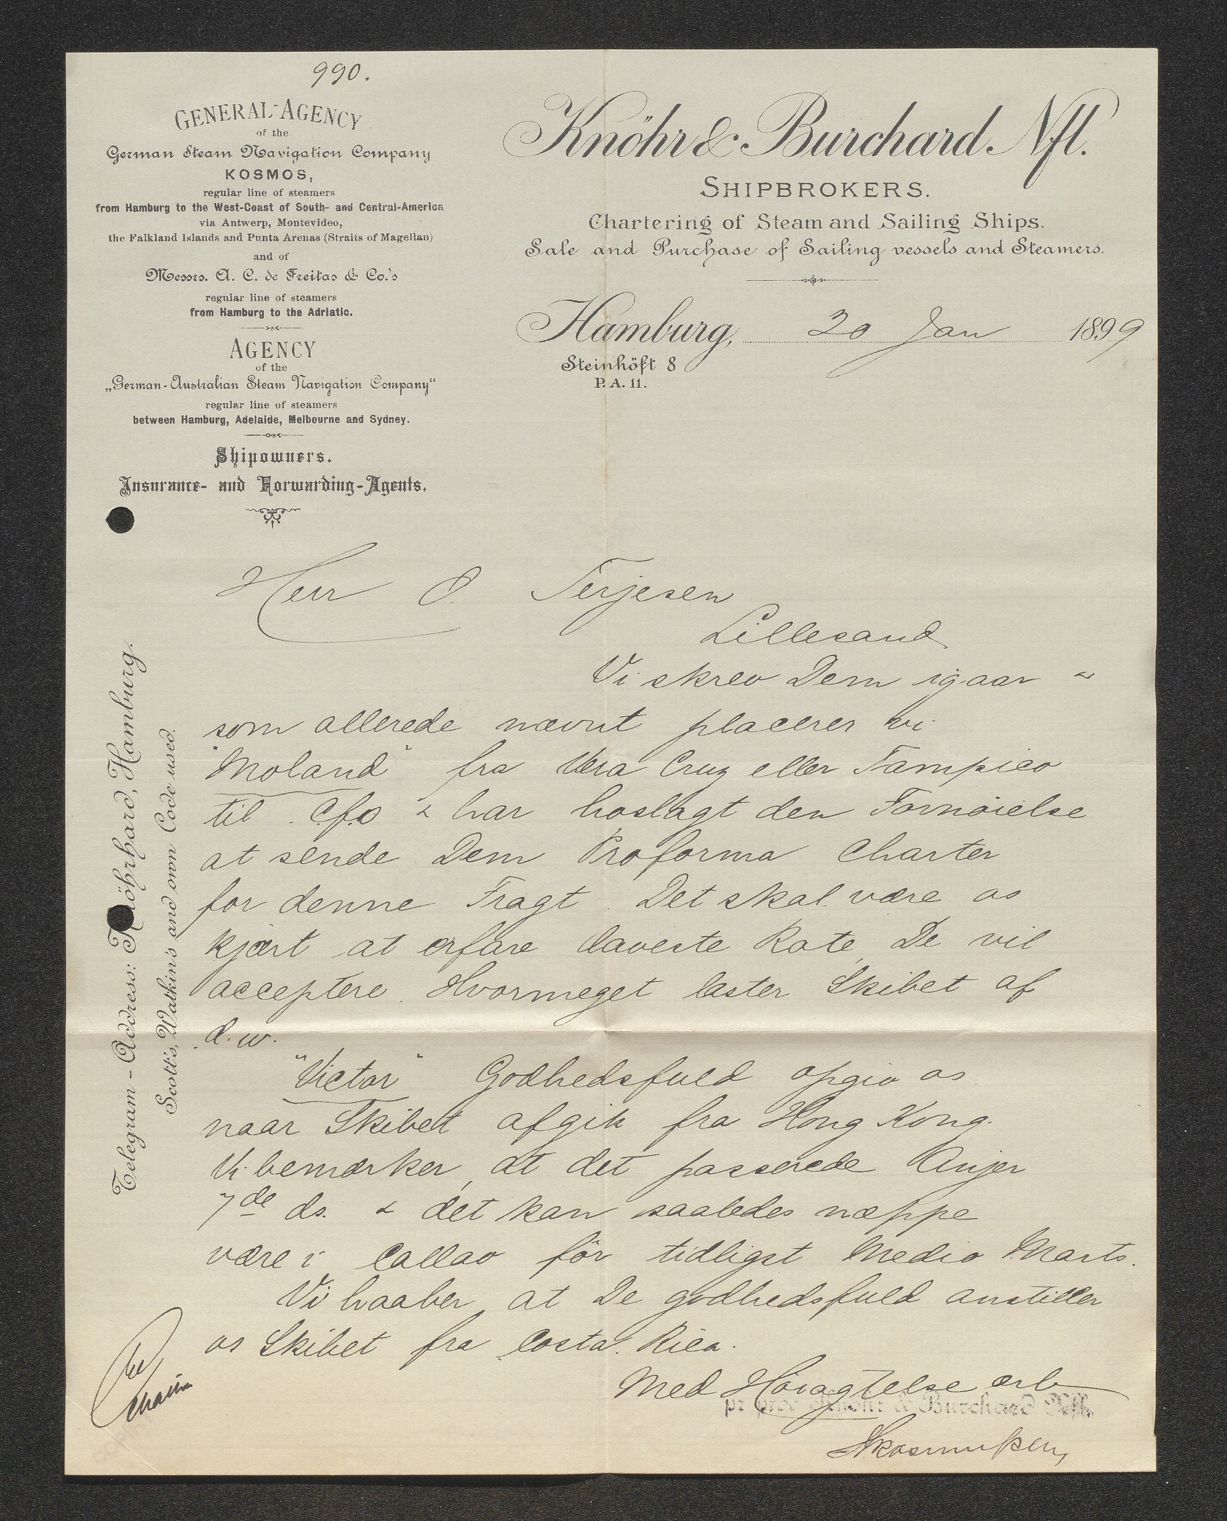 990.
GENERAL-AGENCY
of the
German Steam Navigation Company
KOSMOS,
regular line of steamers
from Hamburg to the West-Coast of South- and Central-America
via Antwerp, Montevideo,
the Falkland Islands and Punta Arenas (Straits of Magellan)
and of
Messrs. A. C. de Freitas & Co.'s
regular line of steamers
from Hamburg to the Adriatic.
AGENCY
of the
„German-Australian Steam Navigation Company“
regular line of steamers
between Hamburg, Adelaide, Melbourne and Sydney.
Shipowners.
Insurance- and Forwarding-Agents.
Knöhr & Burchard Nfl.
SHIPBROKERS.
Chartering of Steam and Sailing Ships.
Sale and Purchase of Sailing vessels and Steamers.
Hamburg, 20 Jan 1899
Steinhöft 8
P. A. 11.
Telegram-Address: Knöhrhard, Hamburg.
Scott's, Watkin's and own Code used.
Herr O. Terjesen
Lillesand
Vi skrev Dem igaar
som allerede nævnt placerer vi
"Moland" fra Vera Cruz eller Tampico
til Cfo & har hoslagt den Fornøielse
at sende Dem Proforma Charter
for denne Fragt. Det skal være os
kjært at erfare laveste Rate De vil
acceptere. Hvormeget laster Skibet af
d.w.
"Victor" Godhedsfuld opgiv os
naar Skibet afgik fra Hong Kong.
Vi bemærker, at det passerede Anjer
7de ds. & det kan saaledes næppe
være i Callao för tidligst Medio Marts.
Vi haaber at De godhedsfuld anstiller
os Skibet fra Costa Rica.
Med Høiagtelse ærb
pr proc Knöhr & Burchard Nfl.